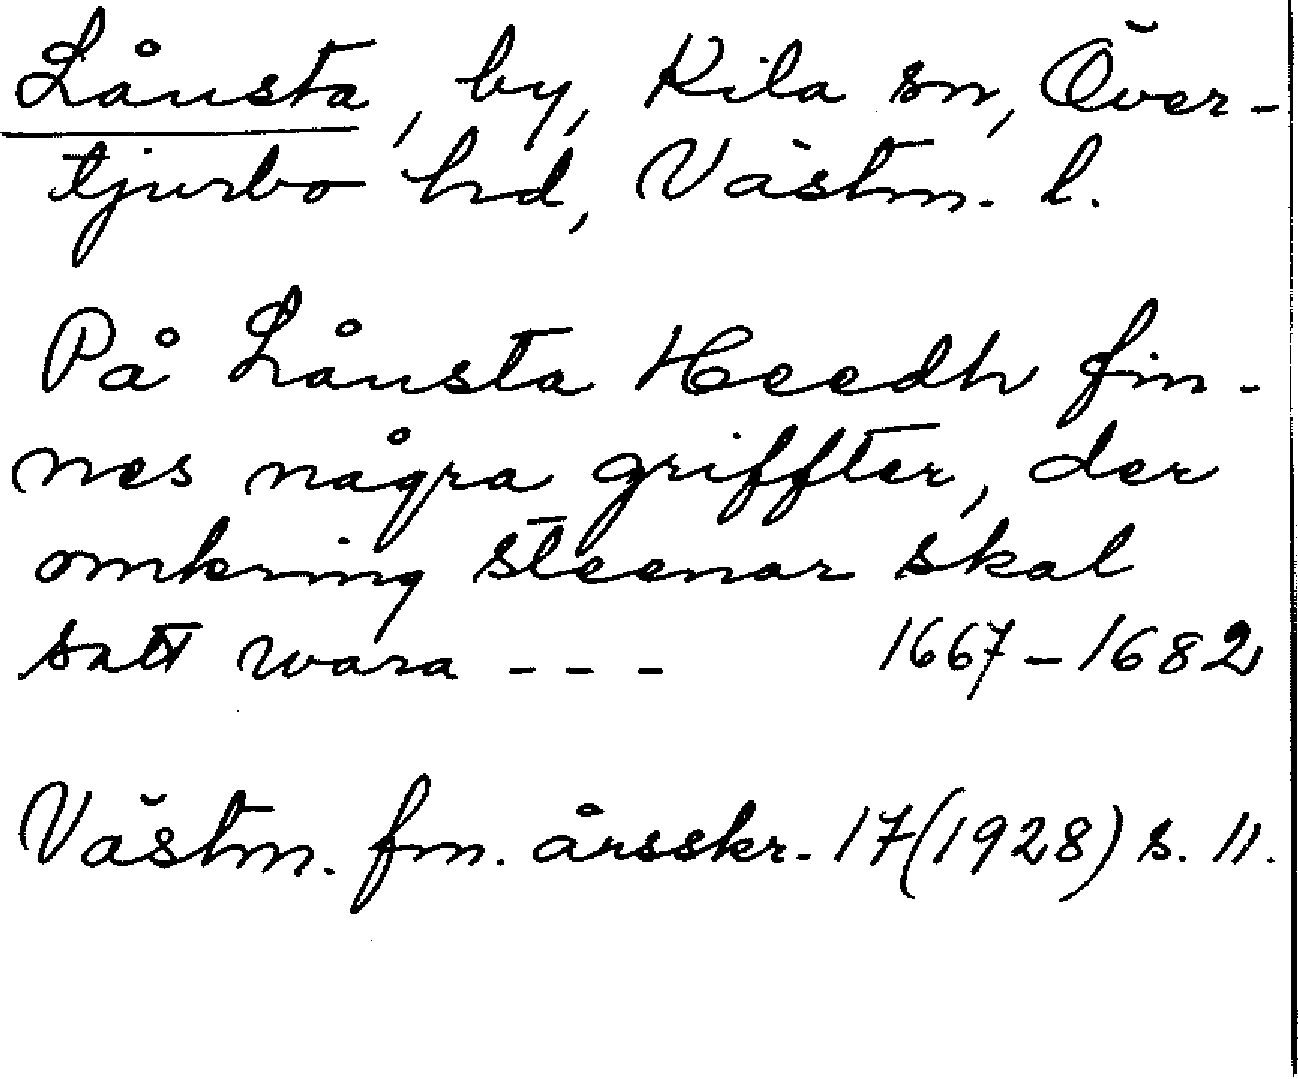 Lånsta, by, Kila sn, Över-
tjurbo hd, Västm. l.
På Lånsta Heedh fin-
nes några griffter, der
omkring steenar skal
satt wara - - - 1667-1682
Västm. fm. årsskr. 17(1928) s. 11.